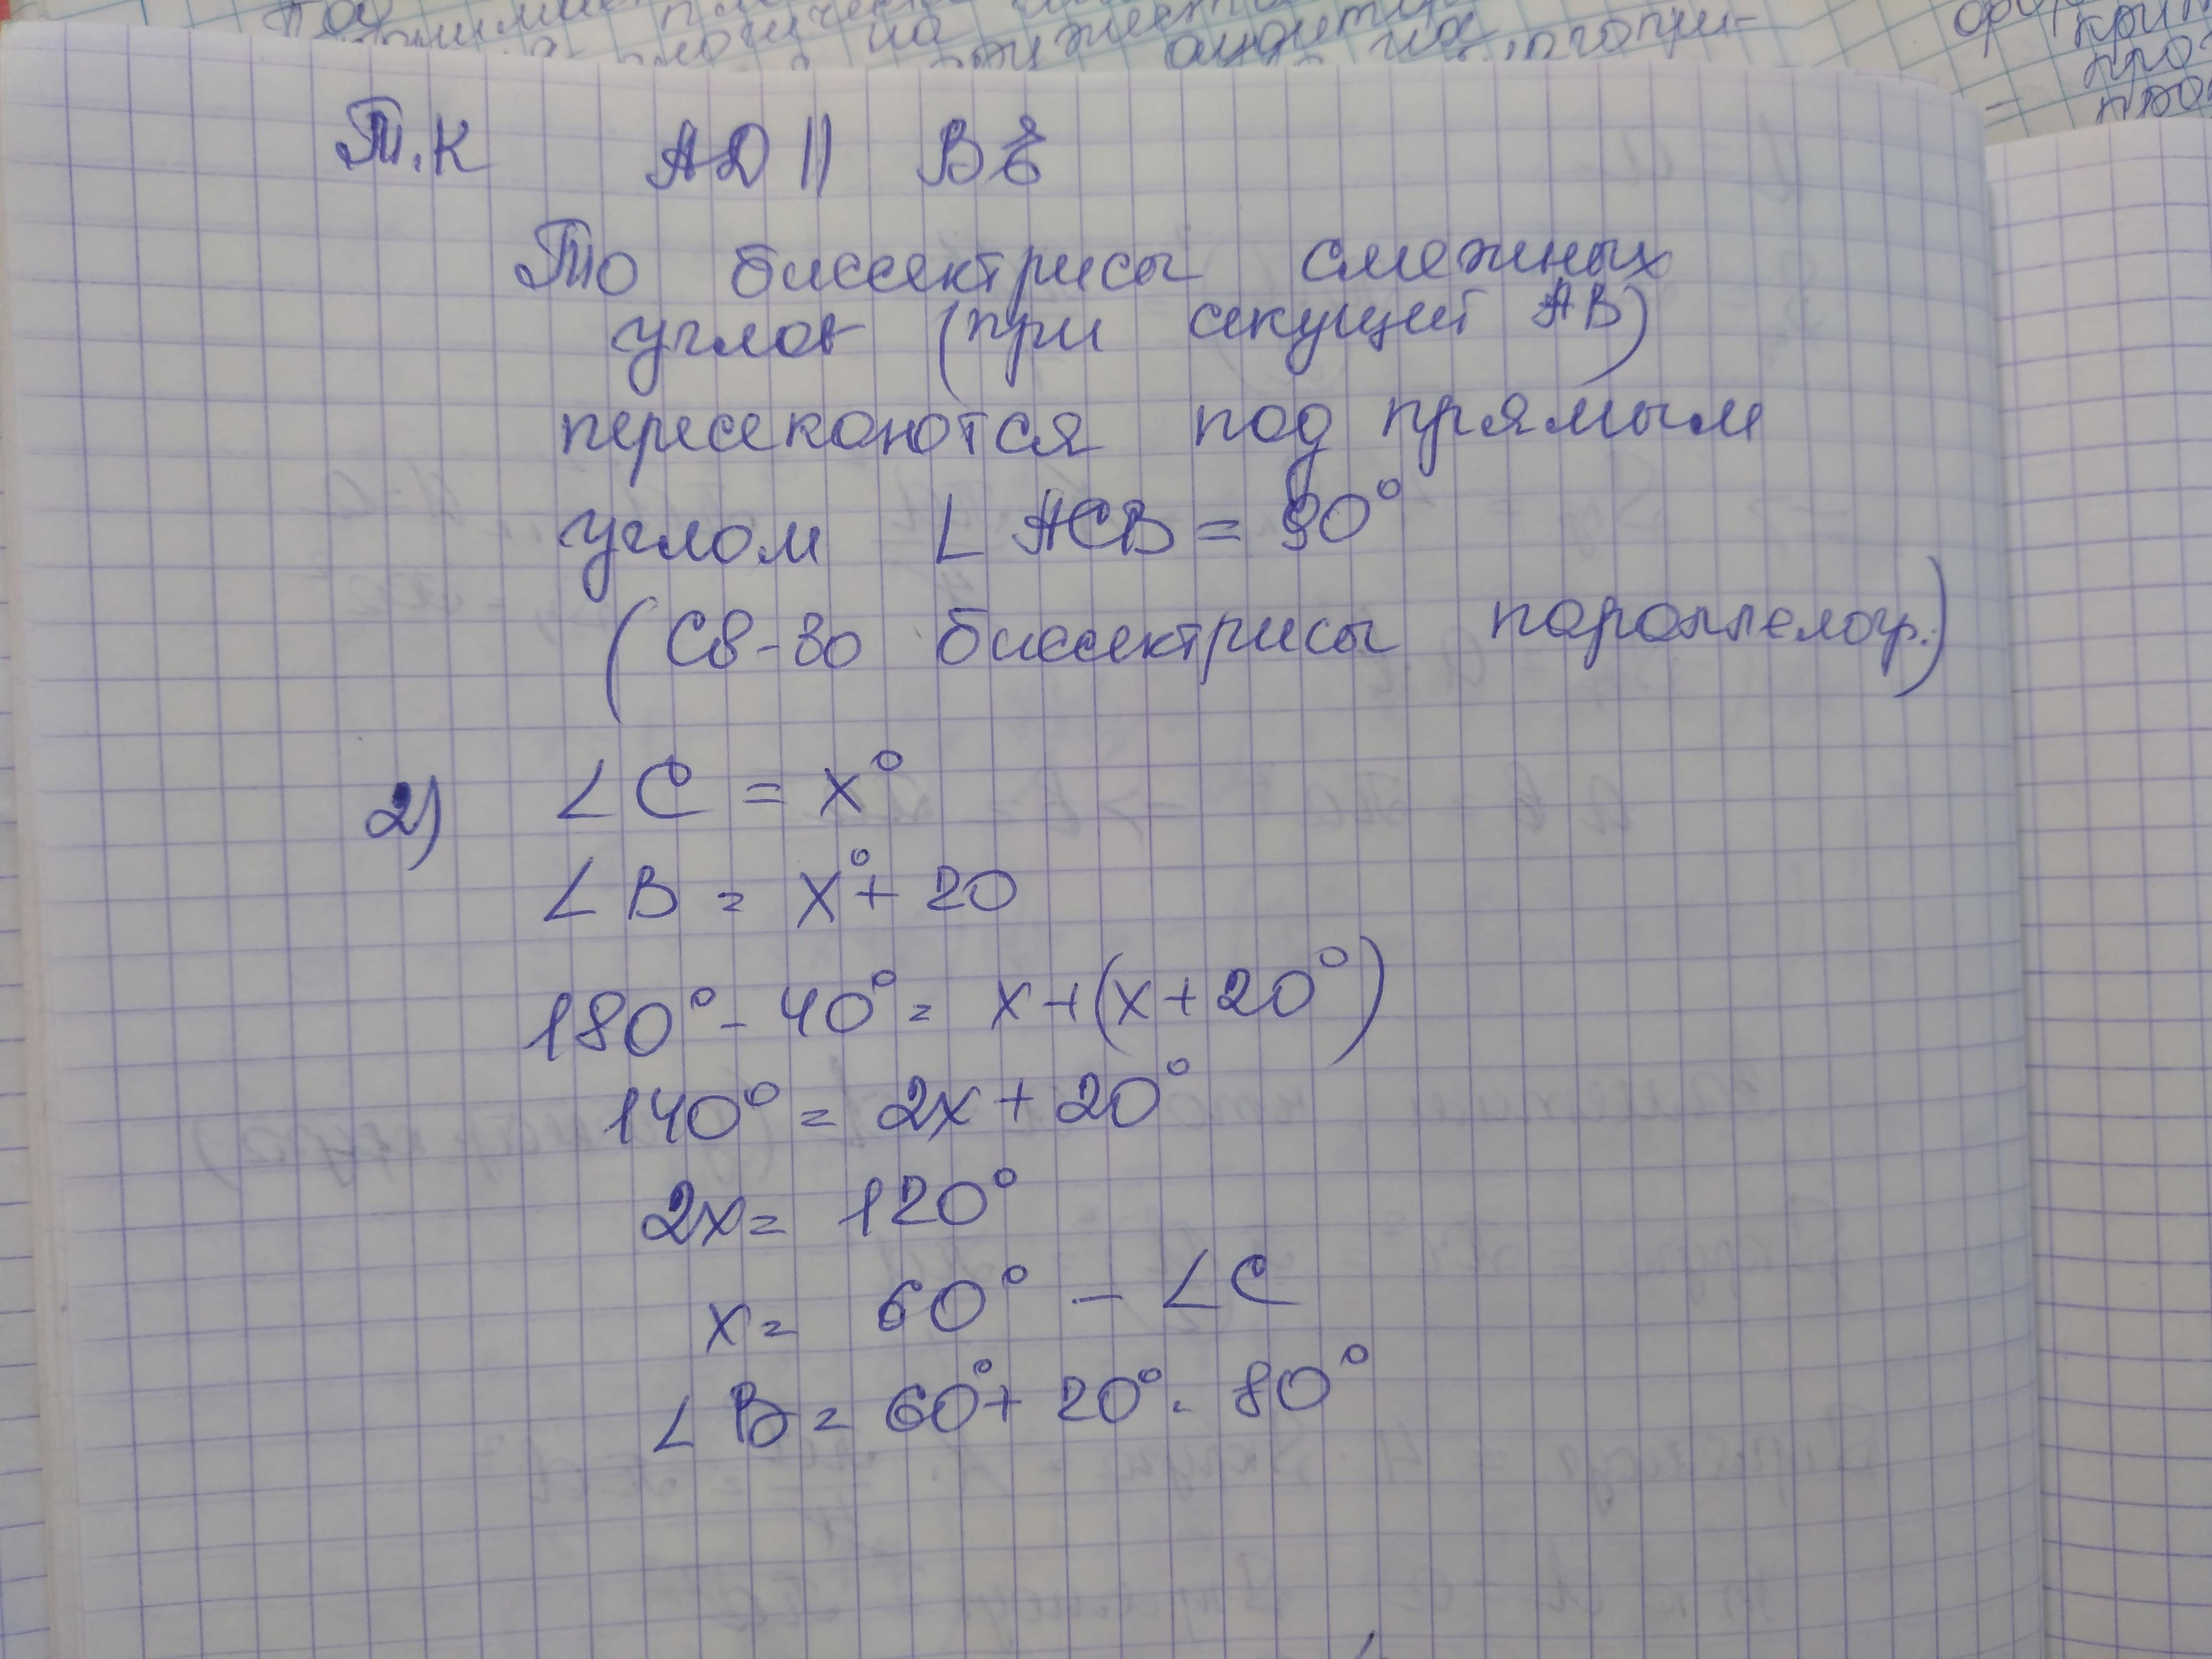 Т.К AD || BE
То биссектрисы смежных
углов (при секущей AB)
пересекоются под прямым
углом ∟ ACB = 90°
(Св-во биссектрисы пороллелогр.)
2) ∠C = x°
∠B = x°+ 20
180° - 40° = x + (x + 20°)
140° = 2x + 20°
2x = 120°
x = 60° - ∠C
∠B = 60°+ 20° = 80°